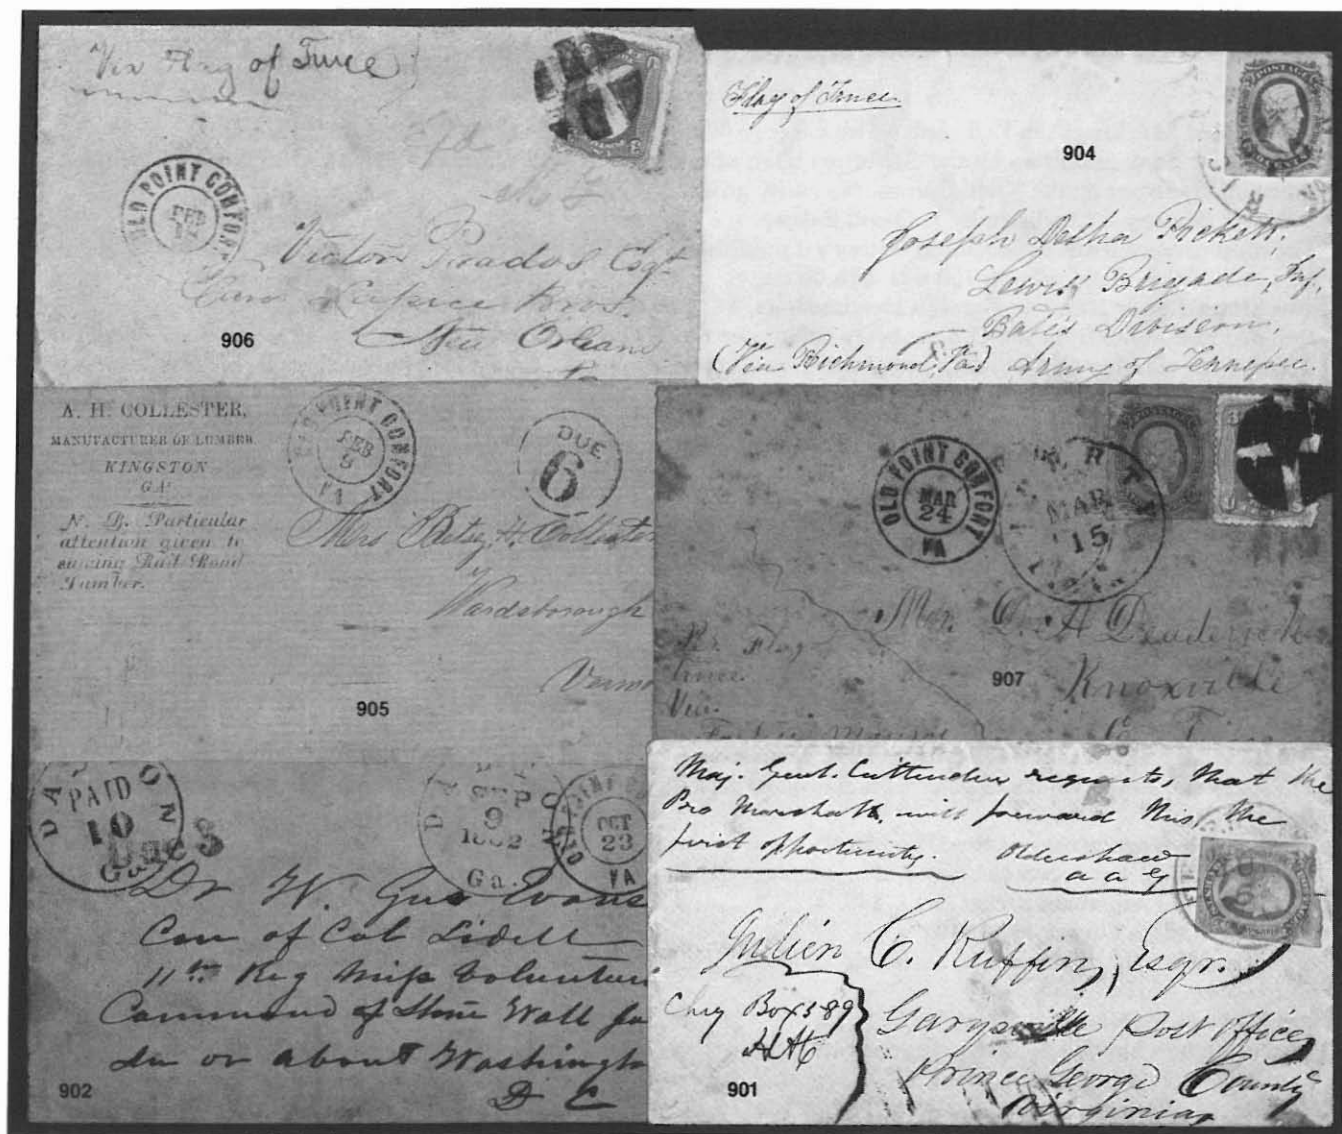 Via Flag of Truce
OLD POINT COMFORT
FEB
Victor Prados Esqr
Care Lapice Bros.
New Orleans
906
Flag of Truce.
POSTAGE
904
Joseph Desha Pickett.
Lewis's Brigade, Inf.
Bate's Division.
(Via Richmond, Va) Army of Tennessee.
A. H. COLLESTER,
MANUFACTURER OF LUMBER
KINGSTON
GA
N. B. Particular
attention given to
sawing Rail Road
Lumber.
OLD POINT COMFORT
FEB
8
VA
DUE
6
Mrs Betsy H. Collester
Wardsborough
Vermo
905
OLD POINT COMFORT
MAR
24
VA
MAR
15
Mrs. D. A Deaderick
Knoxville
E. Tenn
Per Flag
truce.
Via.
907
DA ON
PAID
10
Due 3
Ga
SEP
9
1862
Ga.
OLD POINT CO
OCT
23
VA
Dr W. Gus Evans
Care of Col Lidell
11th Reg Miss Volunteer
Command of Stone Wall Ja
In or about Washington
D C
902
Maj. Genl. Crittenden requests, that the
Pro Marshall, will forward this, the
first opportunity.
a a G
Julien C. Ruffin, Esqr.
Chg Box 589
Garysville Post Office,
Prince George County
Virginia,
901